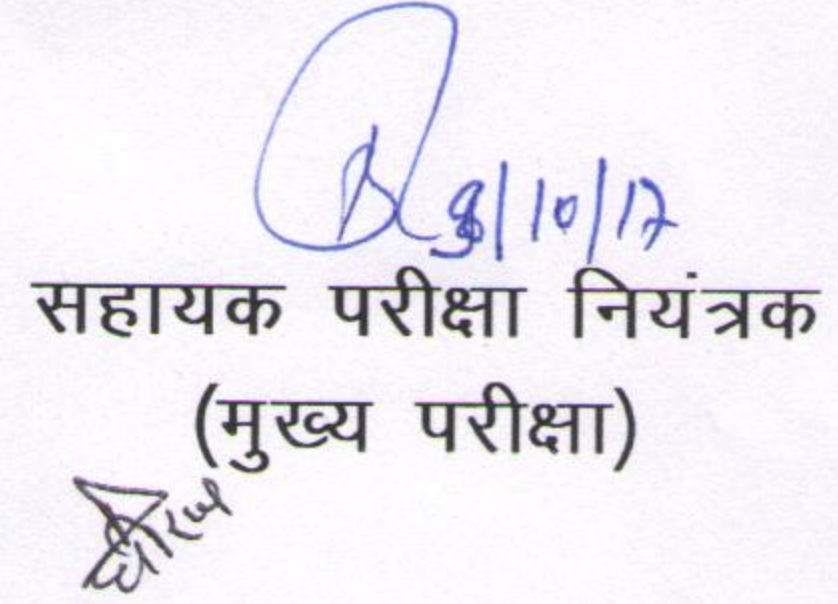 /10/17
सहायक परीक्षा नियंत्रक
(मुख्य परीक्षा)